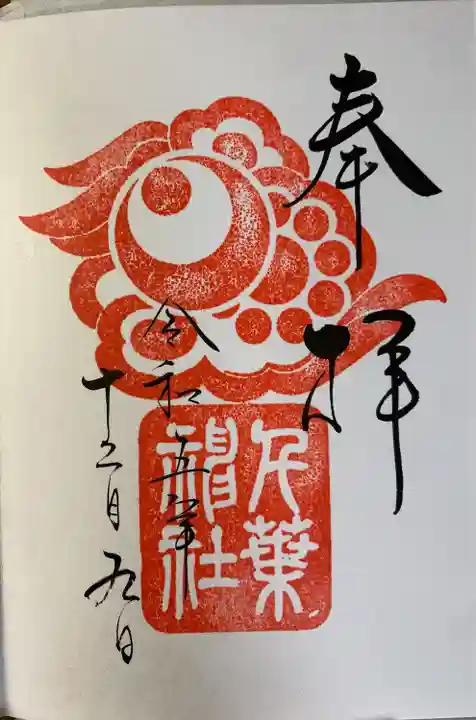 奉拝
千葉
神社
令和五年
十二月九日